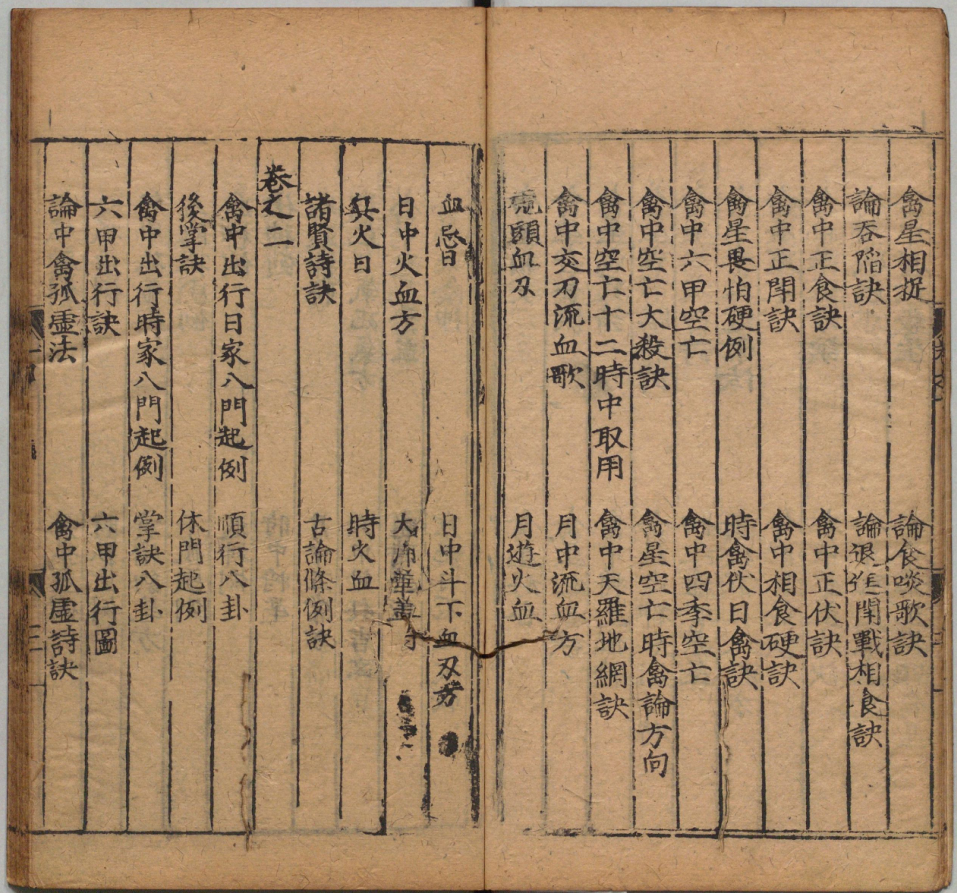 禽星相捉 論食啖歌訣
論吞陷訣 論退作鬥戰相食訣
禽中正食訣 禽中正伏訣
禽中正閗訣 禽中相食硬訣
禽星畏怕硬例 時禽伏日禽訣
禽中六甲空亡 禽中四季空亡
禽中空亡大殺訣 禽星空亡時禽論方向
禽中空亡十二時中取用 禽中天羅地網訣
禽中交刀流血歌 月中流血方
頭血刃 月遊火血
血忌日 日中斗下血刃方
日中火血方 華蓋
火日 時火血
諸賢詩訣 古論條例訣
卷之二
禽中出行日家八門起例 順行八卦
後掌訣 休門起例
禽中出行時家八門起例 掌訣八卦
六甲出行訣 六甲出行圖
論中禽孤虛法 禽中孤虛詩訣